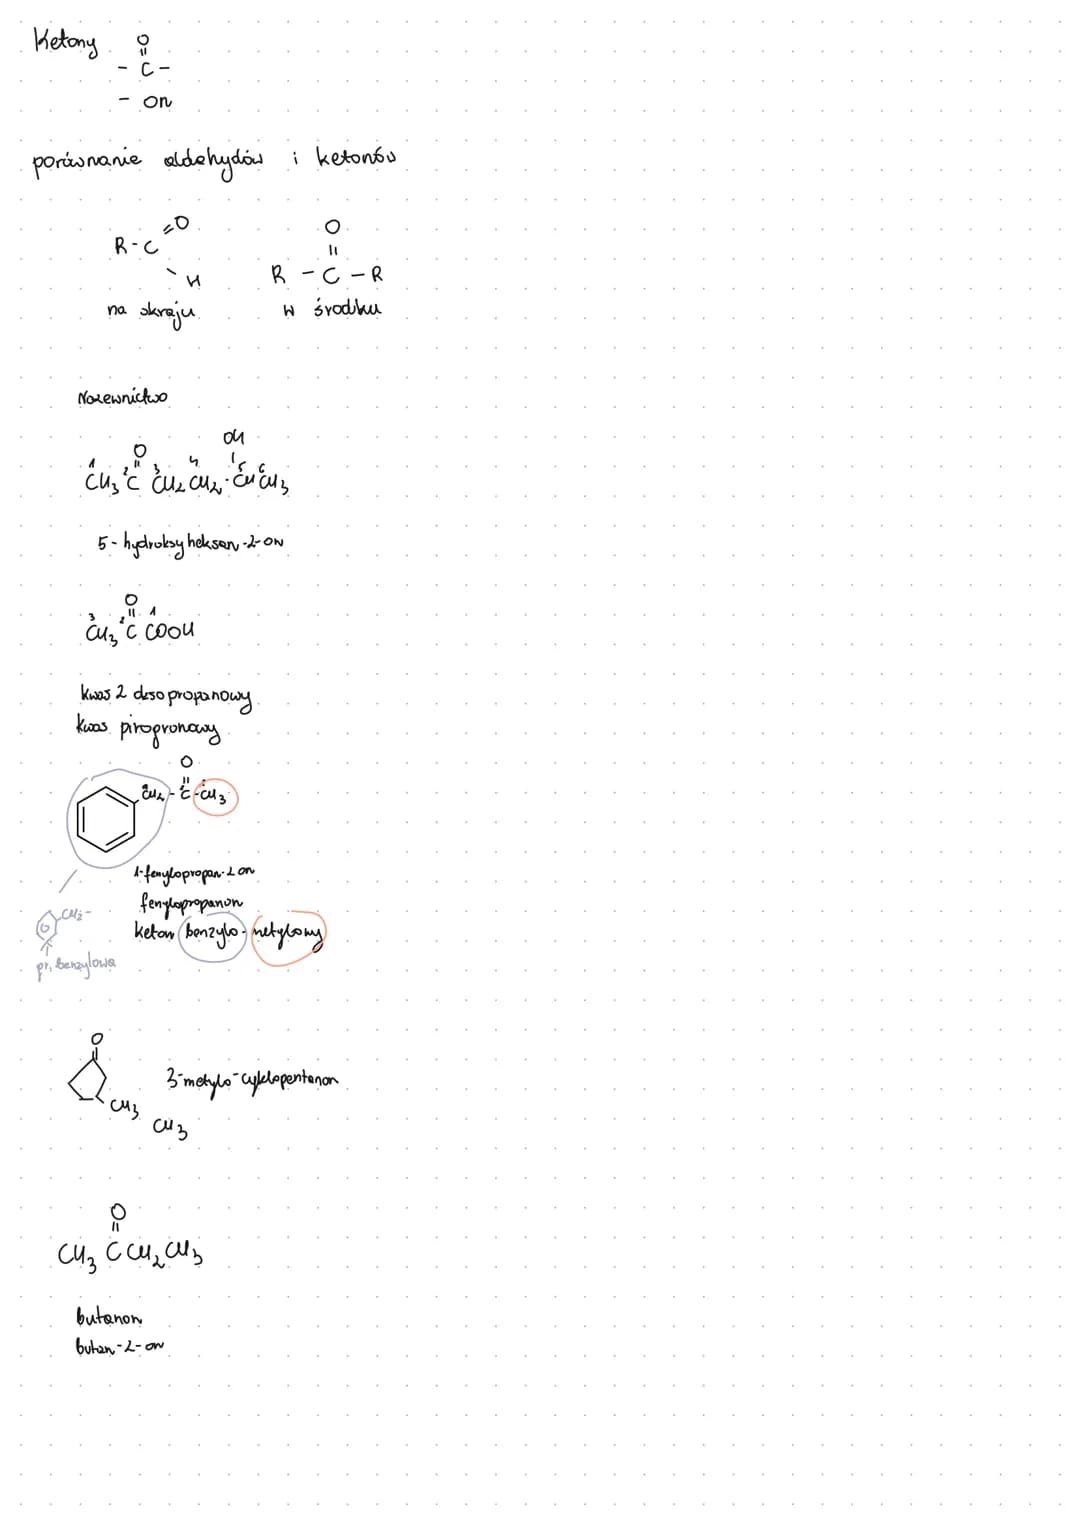 Ketony
O
||
- C -
- on
porównanie aldehydów i ketonów
R - C =O
\ H
O
||
R - C - R
na skraju
w środku
Nazewnictwo
O OH
1 2 3 4 5 6
CH3 C CH2 CH2 - CH CH3
5 - hydroksyheksan - 2 - on
O
3 2 1
CH3 C COOH
kwas 2 okso propanowy
kwas pirogronowy
O
||
CH2 - C - CH3
1-fenylopropan-2 on
fenylopropanon
keton benzylo - metylowy
CH2 -
gr. benzylowa
O
3-metylo-cyklopentanon
CH3
CH3
O
||
CH3 C CH2 CH3
butanon
butan-2-on